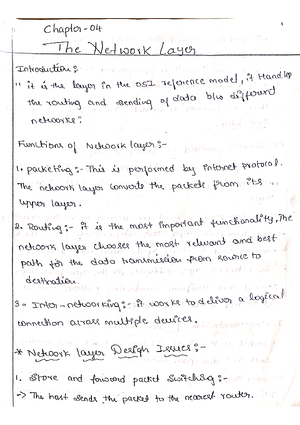 Chapter-04
The Network Layer
Introduction :
" it is the layer in the OSI reference model, it Handles
the routing and sending of data b/w different
networks :
Functions of Network layer :-
1. packeting :- This is performed by internet protocol.
The network layer converts the packets from its
upper layer.
2. Routing :- it is the most important functionality, The
network layer chooses the most relevant and best
path for the data transmission from source to
destination.
3 - Inter-networking :- it works to deliver a logical
connection across multiple devices.
* Network layer Design Issues :-
1. Store and forward packet switching :-
-> The host sends the packet to the nearest router.